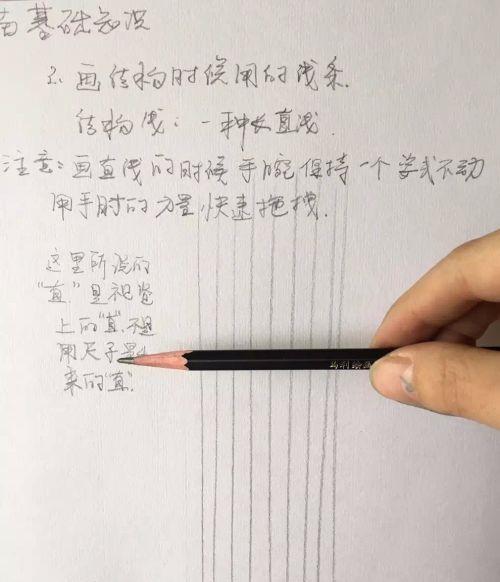 基础知识
2、画结构时候用的线条.
结构线:一种长直线.
注意:画直线的时候手腕保持一个姿式不动
用手肘的力量快速拖拽.
这里所说的
"直"是视觉
上的"直"不是
用尺子量
来的"直".
马利绘画